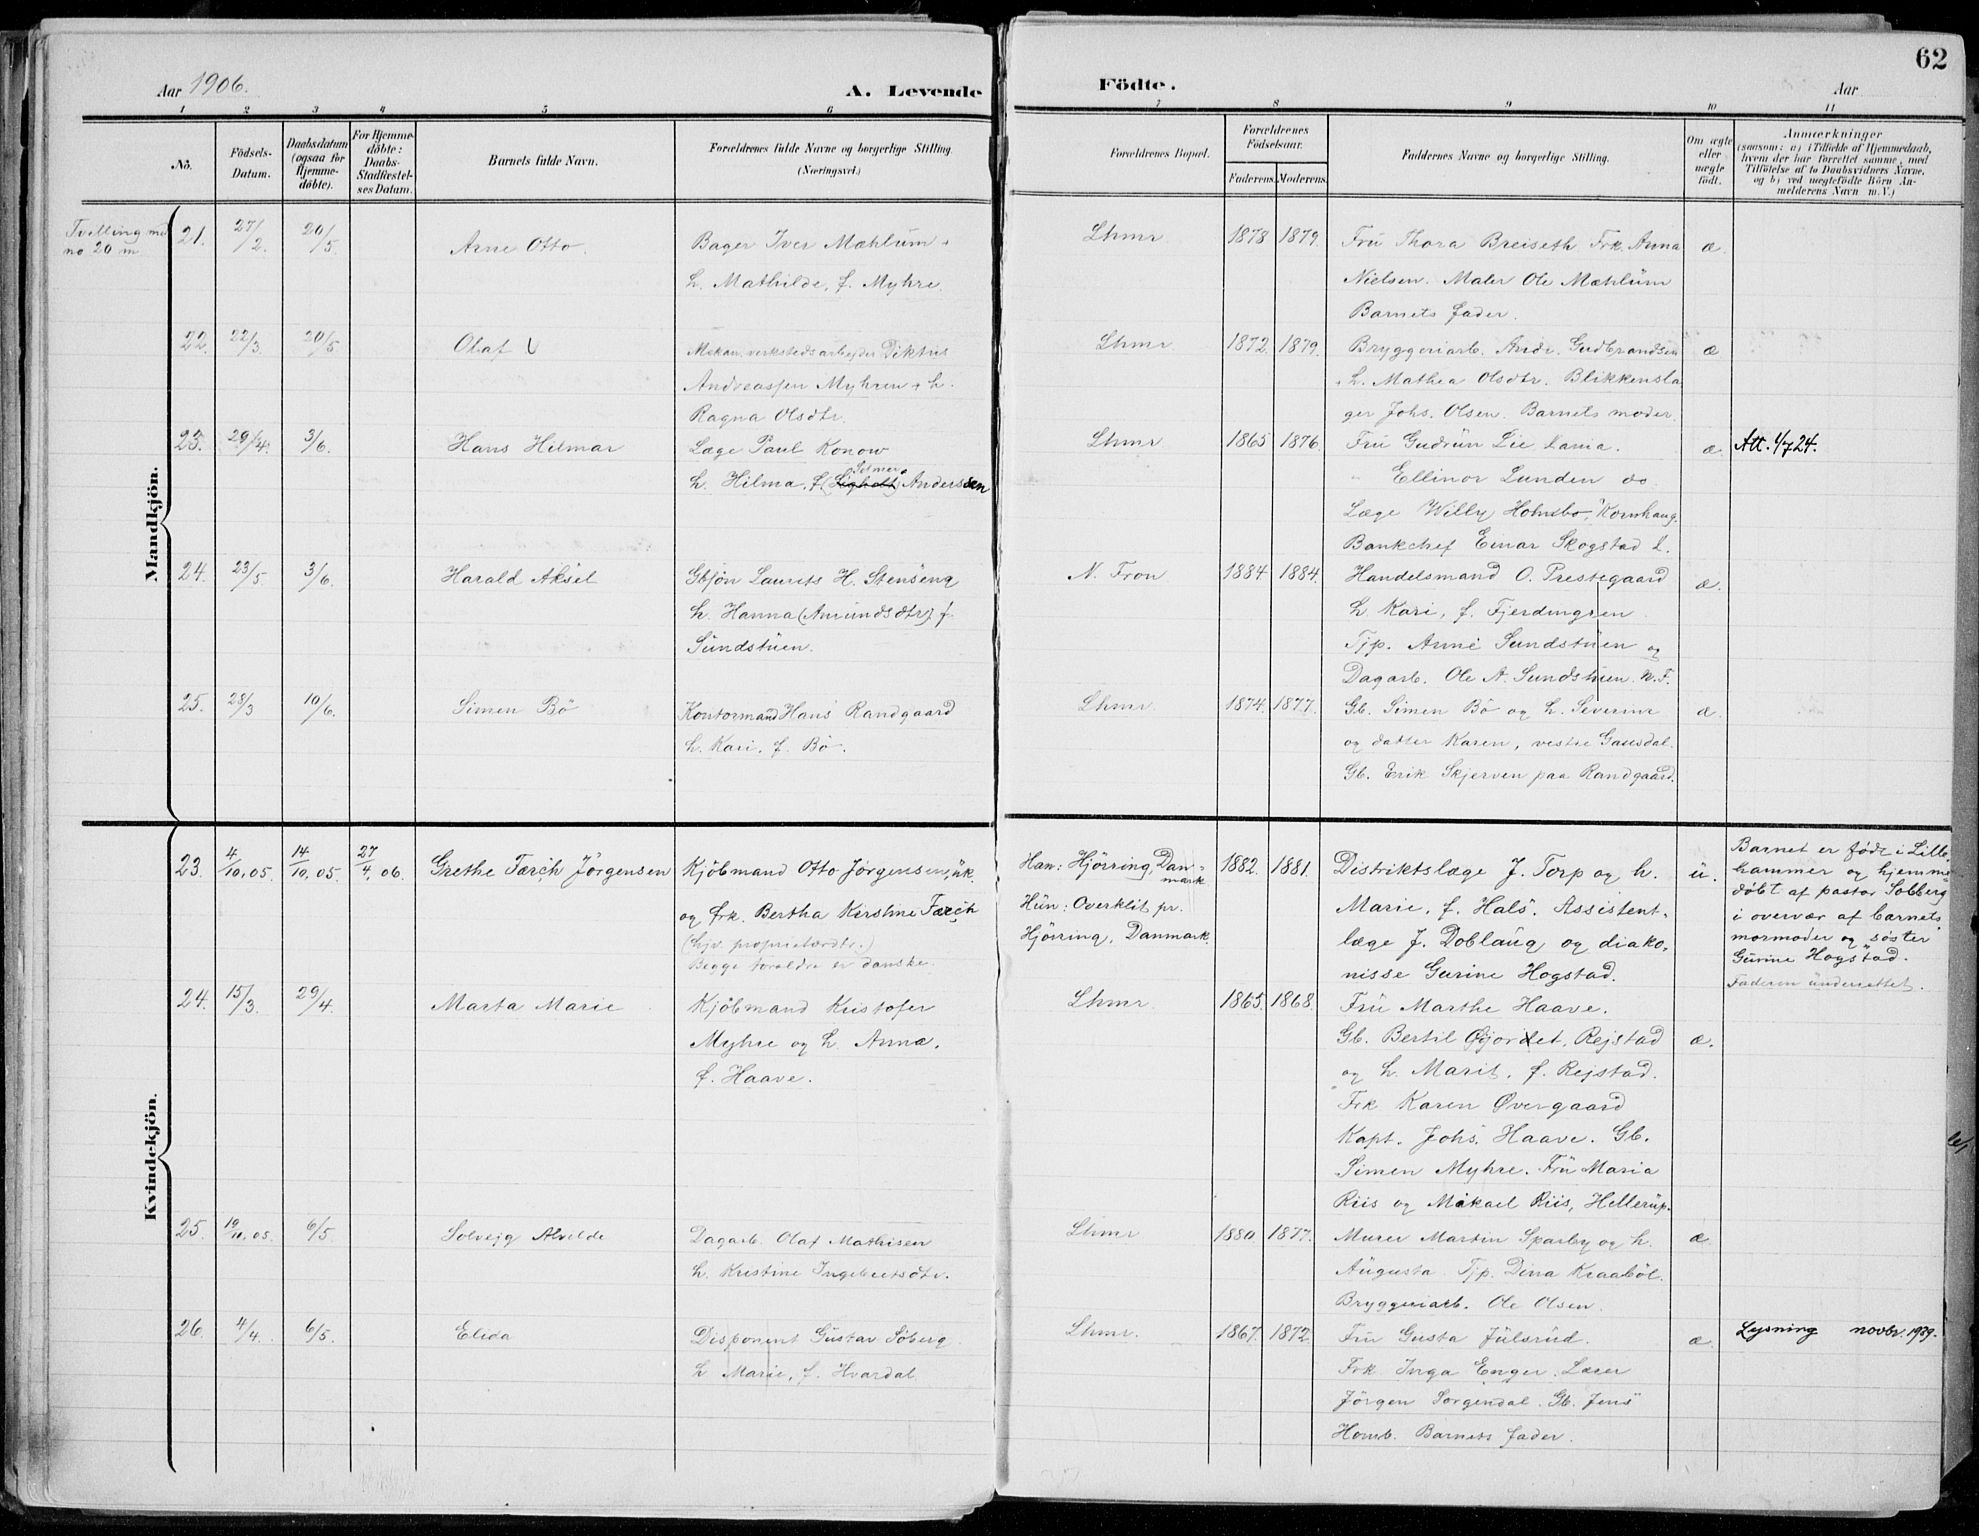 62
Aar 1906.
A. Levende
Födte.
Aar
1 2 3 4 5 6 7 8 9 10 11
No.
Födsels-Datum.
Daabsdatum (ogsaa for Hjemme-döbte).
For Hjemme-döbte: Daabs-Stadfæstel-ses Datum.
Barnets fulde Navn.
Forældrenes fulde Navne og borgerlige Stilling (Næringsvei.)
Forældrenes Bopæl.
Forældrenes Födselsaar.
Faderens. Moderens.
Faddernes Navne og borgerlige Stilling.
Om ægte eller uægte födt.
Anmærkninger
(saasom: a) i Tilfælde af Hjemmedaab, hvem der har forrettet samme, med Tilföielse af to Daabsvidners Navne, og b) ved uægtefödte Börn An-melderens Navn m. V.)
Mandkjön.
Tvilling med no 20 m
21. 27/2. 20/5 Arne Otto. Bager Iver Mæhlum + Lhmr 1878 1879. Fru Thora Breiseth Frk. Anna æ.
h. Mathilde, f. Myhre. Nielsen. Maler Ole Mæhlum
Barnets fader.
22. 22/3. 20/5 Olaf Mekan. verkstedsarbejder Diktus Lhmr 1872. 1879. Bryggeriarb. Andr. Gudbrandsen æ
Andreassen Myhren + h. + h. Mathea Olsdtr. Blikkensla
Ragna Olsdtr. ger Johs. Olsen. Barnets moder.
23. 29/4. 3/6. Hans Hilmar Læge Paul Konow Lhmr 1865 1876. Fru Gudrun Lie, Lania. æ Att. 1/7 24.
h. Hilma, f. Andersen " Ellinor Lunden do
Læge Willy Holmbo, Kornhaug.
Bankchef Einar Skogstad L.
24. 23/5 3/6. Harald Aksel Gbsön Laurits H. Stenseng N. Fron 1884. 1884. Handelsmand O. Prestegaard æ.
h. Hanna (Amundsdtr) f. h. Kari, f. Fjerdingren
Sundstuen. Tjp. Anne Sundstuen og
Dagarb. Ole A. Sundstuen. N.F.
25. 28/3 10/6. Simen Bö Kontormand Hans Randgaard Lhmr. 1874. 1877. Gb. Simen Bö og h. Severine æ.
h. Kari, f. Bö. og datter Karen, vestre Gausdal.
Gb. Erik Skjerven paa Randgaard.
Kvindekjön.
23. 4/10.05. 14/10.05. 27/4.06. Grethe Færch Jörgensen Kjöbmand Otto Jörgensen, uk. Han: Hjörring, Dan-mark 1882. 1881. Distriktslæge J. Torp og h. u. Barnet er født i Lille-
og frk. Bertha Kirstine Færch Hun: Overklit pr. Marie, f. Hals. Assistent- hammer og hjemme-
(hjv. proprietærdtr.) Hjörring, Danmark. læge J. Doblaug og diako- döbt af pastor Solberg
Begge forældre er danske. nisse Gurine Hogstad. i overvær af barnets
mormoder og søster
Gurine Hogstad.
Faderen underrettet.
24. 15/3. 29/4. Marta Marie Kjöbmand Kristofer Lhmr. 1865. 1868. Fru Marthe Haave.
Myhre og h. Anna, Gb. Bertil Øjordet, Rejstad æ.
f. Haave. og h. Marit, f. Rejstad.
Frk Karen Övergaard
Kapt. Johs. Haave. Gb.
Simen Myhre. Fru Maria
Riis og Mikael Riis, Hellerup.
25. 19/10.05. 6/5. Solvejg Alvilde Dagarb. Olaf Mathisen Lhmr 1880 1877. Murer Martin Sparby og h. æ.
h. Kristine Ingebretsdtr. Augusta. Tjp. Dina Kraaböl.
Bryggeriarb. Ole Olsen.
26. 4/4. 6/5. Elida Disponent Gustav Söberg Lhmr. 1867. 1872. Fru Gusta Julsrud. æ. Lysning novbr. 1939.
h Marie, f. Hvardal Frk Inga Enger. Lærer
Jörgen Sorgendal. Gb. Jens
Homb. Barnets fader.